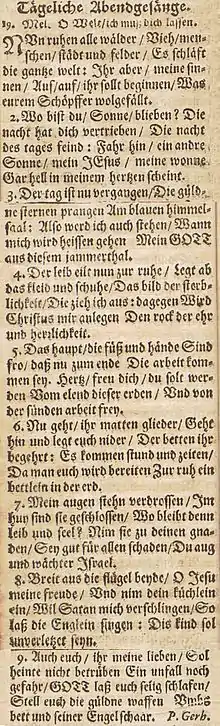 Tägeliche Abendgesänge.
19. Mel. O Welt/ich muß dich lassen.
NVn ruhen alle wälder/Vieh/men-
schen/städt und felder/Es schläft
die gantze welt: Ihr aber/meine sin-
nen/Auf/auf/ihr sollt beginnen/Was
eurem Schöpffer wolgefällt.
2. Wo bist du/Sonne/blieben? Die
nacht hat dich vertrieben/Die nacht
des tages feind: Fahr hin/ein andre
Sonne/mein JEsus/meine wonne
Gar hell in meinem hertzen scheint.
3. Der tag ist nu vergangen/Die güld-
ne sternen prangen Am blauen himmel-
saal: Also werd ich auch stehen/Wann
mich wird heissen gehen Mein GOTT
aus diesem jammerthal.
4. Der leib eilt nun zur ruhe/Legt ab
das kleid und schuhe/Das bild der sterb-
lichkeit/Die zieh ich aus: dagegen Wird
Christus mir anlegen Den rock der ehr
und herrlichkeit.
5. Das haupt/die füß und hände Sind
fro/daß nu zum ende Die arbeit kom-
men sey. Hertz/freu dich/du solt wer-
den Vom elend dieser erden/Vnd von
der sünden arbeit frey.
6. Nu geht/ihr matten glieder/Geht
hin und legt euch nider/Der betten ihr
begehrt: Es kommen stund und zeiten/
Da man euch wird bereiten Zur ruh ein
bettlein in der erd.
7. Mein augen stehn verdrossen/Im
huy sind sie geschlossen/Wo bleibt denn
leib und seel? Nim sie zu deinen gna-
den/Sey gut für allen schaden/Du aug
und wächter Israel.
8. Breit aus die flügel beyde/O Jesu
meine freude/Vnd nim dein küchlein
ein/Wil Satan mich verschlingen/So
laß die Englein singen: Dis kind sol
unverletzet seyn.
9. Auch euch/ihr meine lieben/Sol
heinte nicht betrüben Ein unfall noch
gefahr/GOTT laß euch selig schlafen/
Stell euch die güldne waffen Vmbs
bett und seiner Engel schaar. P. Gerh.